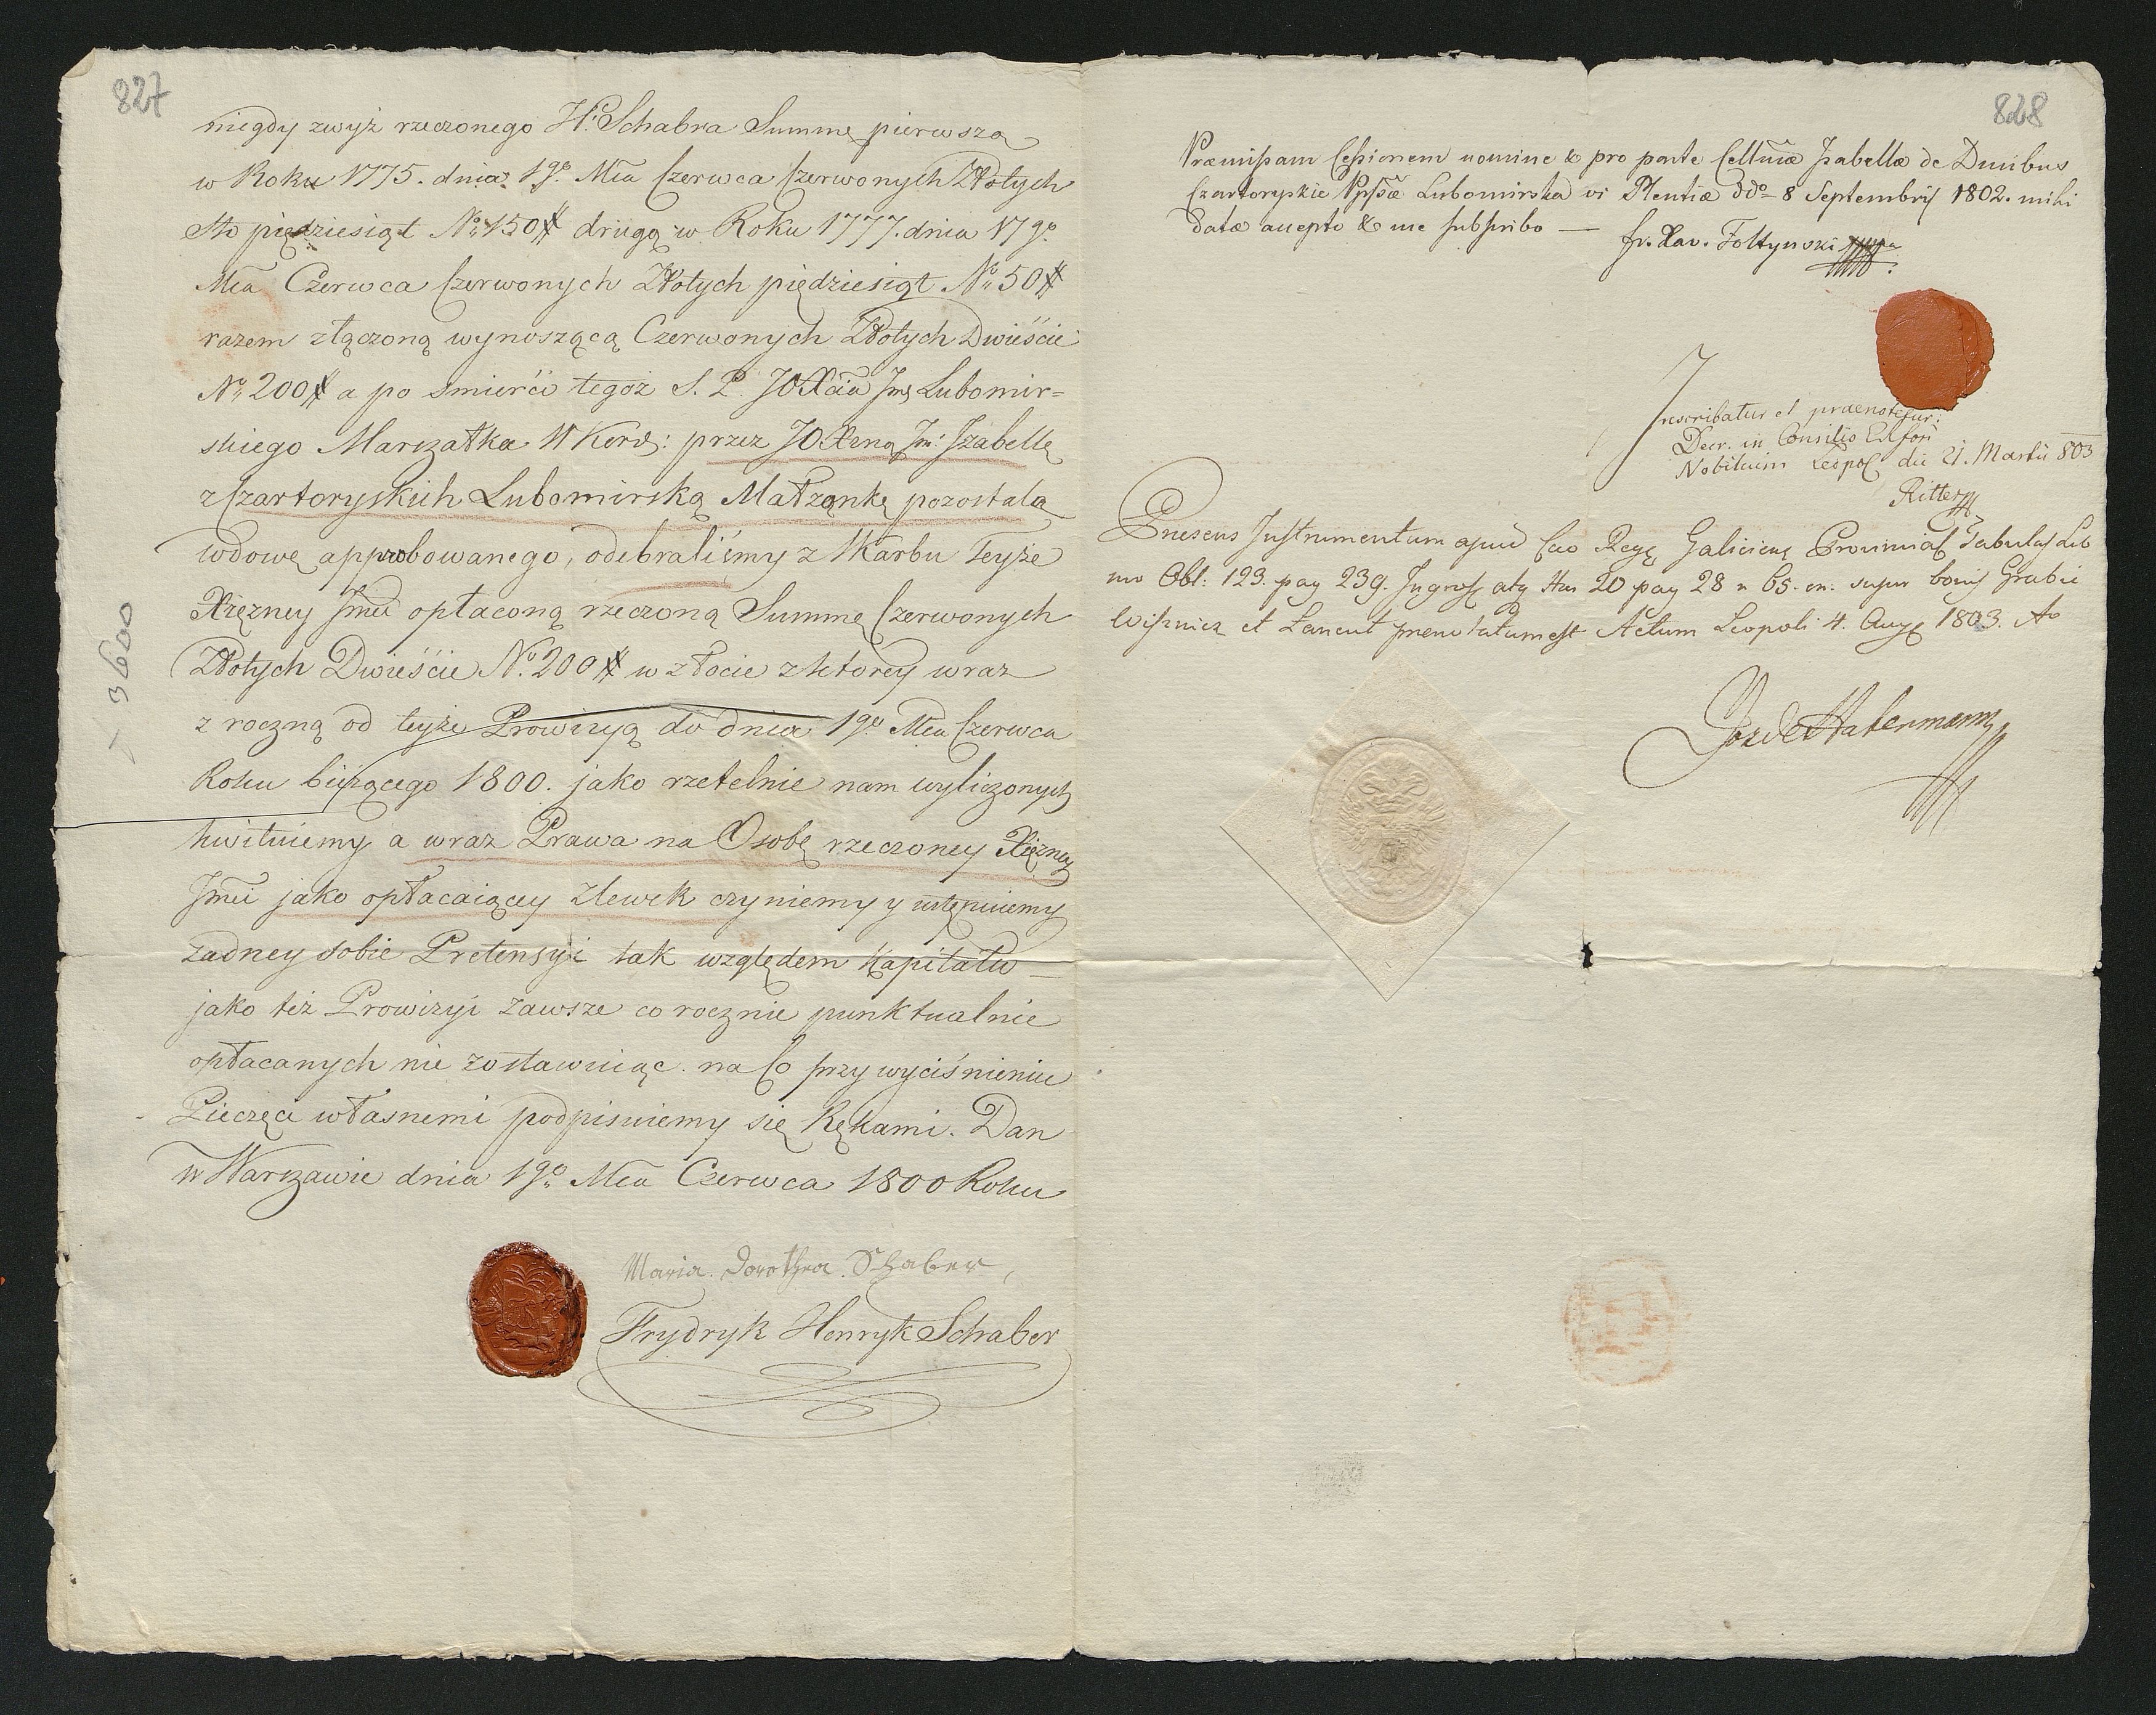 827
niegdy zwyż rzeczonego H: Schabra Summę pierwszą
w Roku 1775. dnia 1go. Mca Czerwca Czerwonych Złotych
Sto pięcdziesiąt No. 150# drugą w Roku 1777. dnia 17go.
Mca Czerwca Czerwonych Złotych pięcdziesiąt No. 50#
razem złączoną wynoszącą Czerwonych Złotych Dwieście
No. 200# a po smierći tegoż S. P. JO Xcia Jmć Lubomir-
skiego Marszałka W Kor: przez JO Xzną Jm: Jzabellę
z Czartoryskich Lubomirską Małżonkę pozostałą
wdowę approbowanego, odebraliśmy z Skarbu Teyże
Xiężney Jmci opłaconą rzeczoną Summę Czerwonych
Złotych Dwieście No. 200# w złocie z ktorey wraz
z roczną od teyże Prowizyą do dnia 1go. Mca Czerwca
Roku bieżącego 1800. jako rzetelnie nam wyliczonych
kwituiemy a wraz Prawa na Osobę rzeczoney Xiężney
Jmci jako opłacaiącey zlewek czyniemy y ustępuiemy
żadney sobie Pretensyi tak względem Kapitału
jako też Prowizyi zawsze co rocznie punktualnie
opłacanych nie zostawuiąc. na Co przy wyciśnieniu
Pieczęci własnemi podpisuiemy się Rękami. Dan
w Warszawie dnia 1go. Mca Czerwca 1800 Roku
Maria. Dorothea. Schaber,
Frydryk Henryk Schaber
3600
828
Præmissam Cessionem nomine & pro parte Cellmæ Isabellæ de Ducibus
Czartoryskie Ppssæ Lubomirska vi Plentiæ ddo 8 Septembris 1802. mihi
datæ accepto & me subscribo — fr. Xav. Foltynski
Inscribatur et praenotetur:
Decr. in Consilio Cs Fori
Nobilium Leopol die 21. Martii 803
Ritter
Præsens Instrumentum apud Cæo Regę Galiciens Provincial Tabulas Lib
ro Obl: 123. pag 239. Ingross atq Her 20 pag 28 n 65. on. super bonis Grabie
Wisznicz et Łancut prenotatum est Actum Leopoli 4. Aug 1803.
Habermann